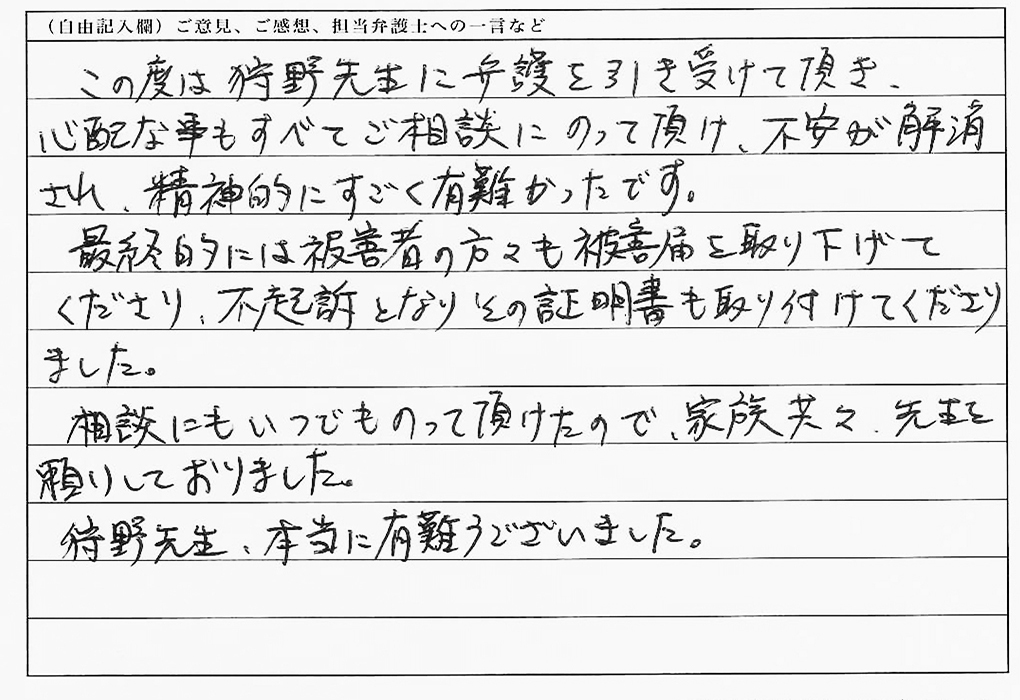 (自由記入欄) ご意見、ご感想、担当弁護士への一言など
この度は狩野先生に弁護を引き受けて頂き、
心配な事もすべてご相談にのって頂け、不安が解消
され、精神的にすごく有難かったです。
最終的には被害者の方々も被害届を取り下げて
くださり、不起訴となりその証明書も取り付けてくださり
ました。
相談にもいつでものって頂けたので、家族共々、先生を
頼りしておりました。
狩野先生、本当に有難うございました。